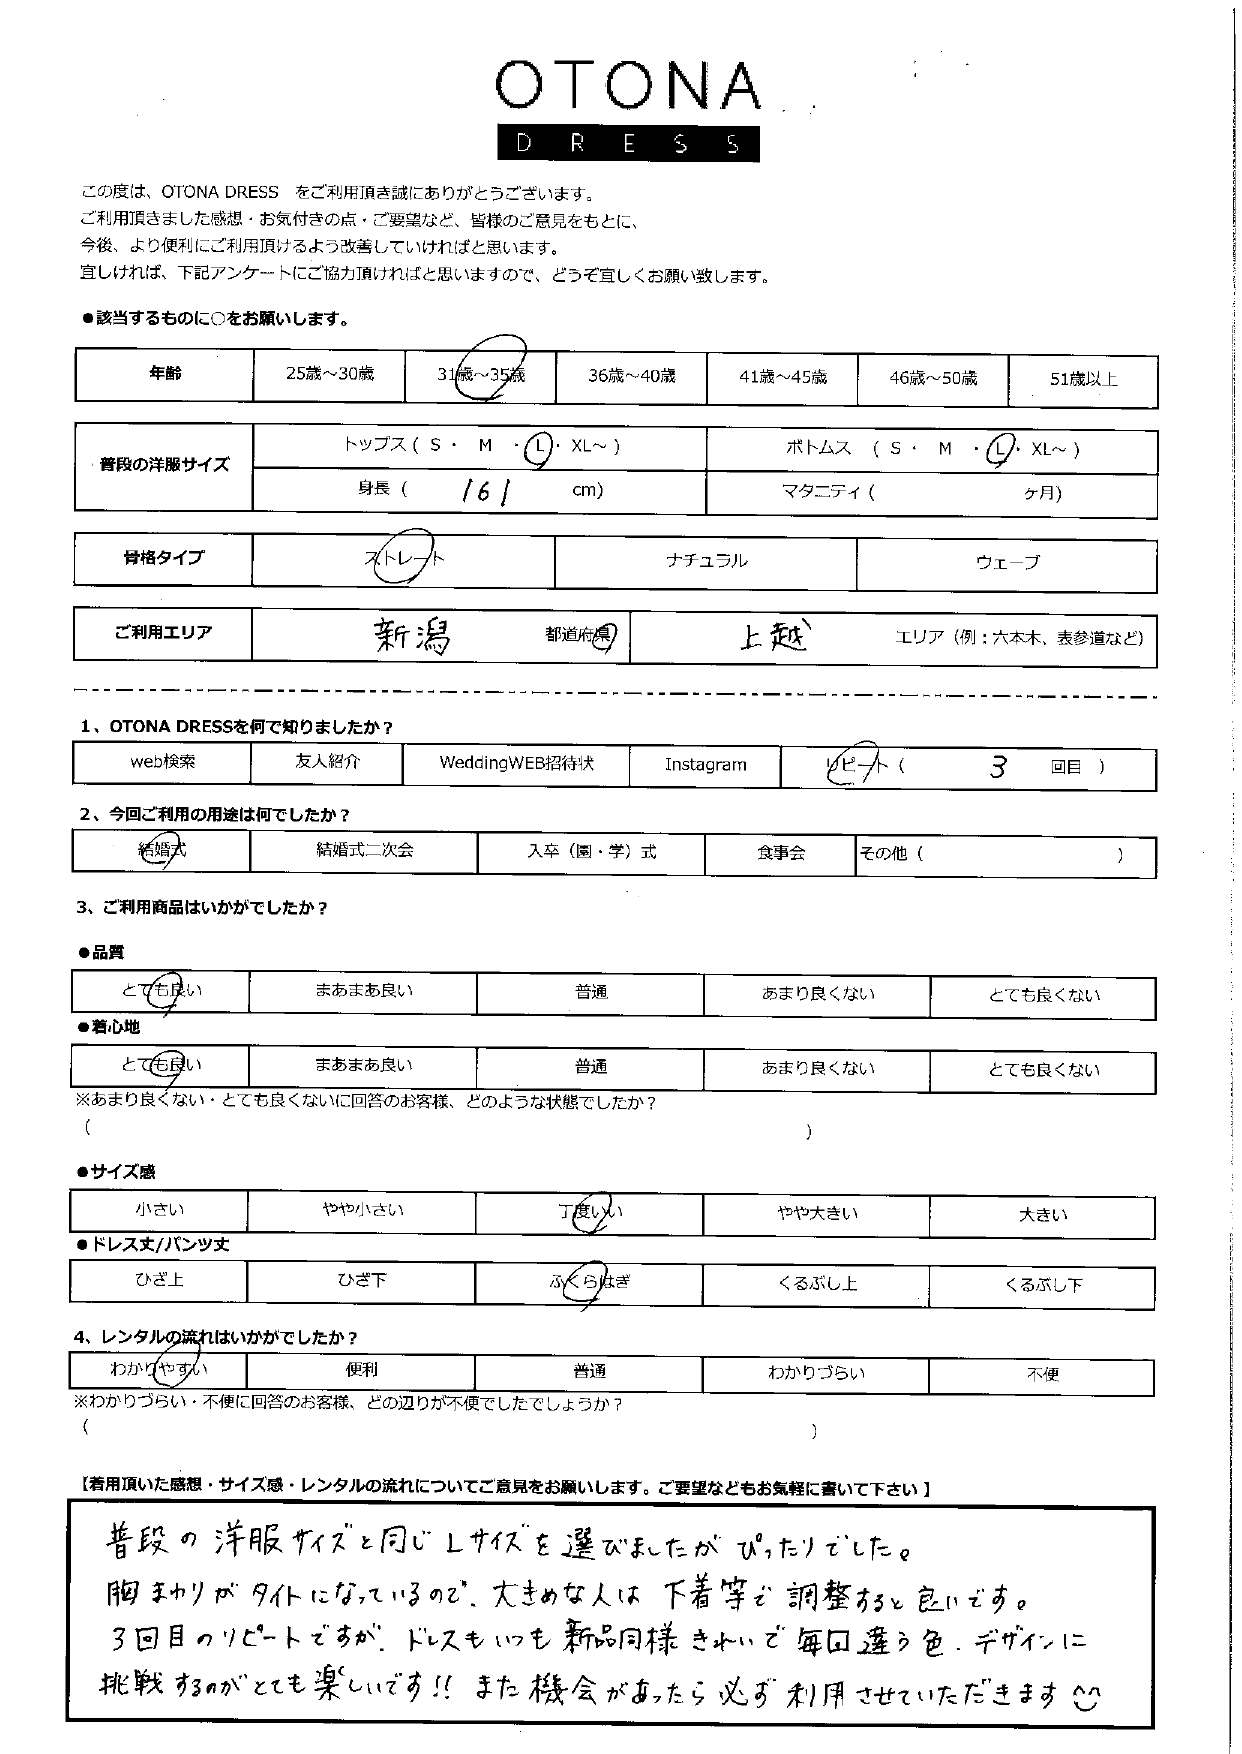 OTONA
DRESS
この度は、OTONA DRESS をご利用頂き誠にありがとうございます。
ご利用頂きました感想・お気付きの点・ご要望など、皆様のご意見をもとに、
今後、より便利にご利用頂けるよう改善していければと思います。
宜しければ、下記アンケートにご協力頂ければと思いますので、どうぞ宜しくお願い致します。
●該当するものに○をお願いします。
年齢 25歳～30歳 31歳～35歳 36歳～40歳 41歳～45歳 46歳～50歳 51歳以上
普段の洋服サイズ トップス ( S ・ M ・ L ・ XL～ ) ボトムス ( S ・ M ・ L ・ XL～ )
身長 ( 161 cm) マタニティ ( ヶ月)
骨格タイプ ストレート ナチュラル ウェーブ
ご利用エリア 新潟 都道府県 上越 エリア（例：六本木、表参道など）
1、OTONA DRESSを何で知りましたか？
web検索 友人紹介 WeddingWEB招待状 Instagram リピート ( 3 回目 )
2、今回ご利用の用途は何でしたか？
結婚式 結婚式二次会 入卒（園・学）式 食事会 その他 ( )
3、ご利用商品はいかがでしたか？
●品質
とても良い まあまあ良い 普通 あまり良くない とても良くない
●着心地
とても良い まあまあ良い 普通 あまり良くない とても良くない
※あまり良くない・とても良くないに回答のお客様、どのような状態でしたか？
( )
●サイズ感
小さい やや小さい 丁度いい やや大きい 大きい
●ドレス丈/パンツ丈
ひざ上 ひざ下 ふくらはぎ くるぶし上 くるぶし下
4、レンタルの流れはいかがでしたか？
わかりやすい 便利 普通 わかりづらい 不便
※わかりづらい・不便に回答のお客様、どの辺りが不便でしたでしょうか？
( )
【着用頂いた感想・サイズ感・レンタルの流れについてご意見をお願いします。ご要望などもお気軽に書いて下さい】
普段の洋服サイズと同じLサイズを選びましたがぴったりでした。
胸まわりがタイトになっているので、大きめな人は下着等で調整すると良いです。
3回目のリピートですが、ドレスもいつも新品同様きれいで毎回違う色、デザインに
挑戦するのがとても楽しいです!! また機会があったら必ず利用させていただきます^^